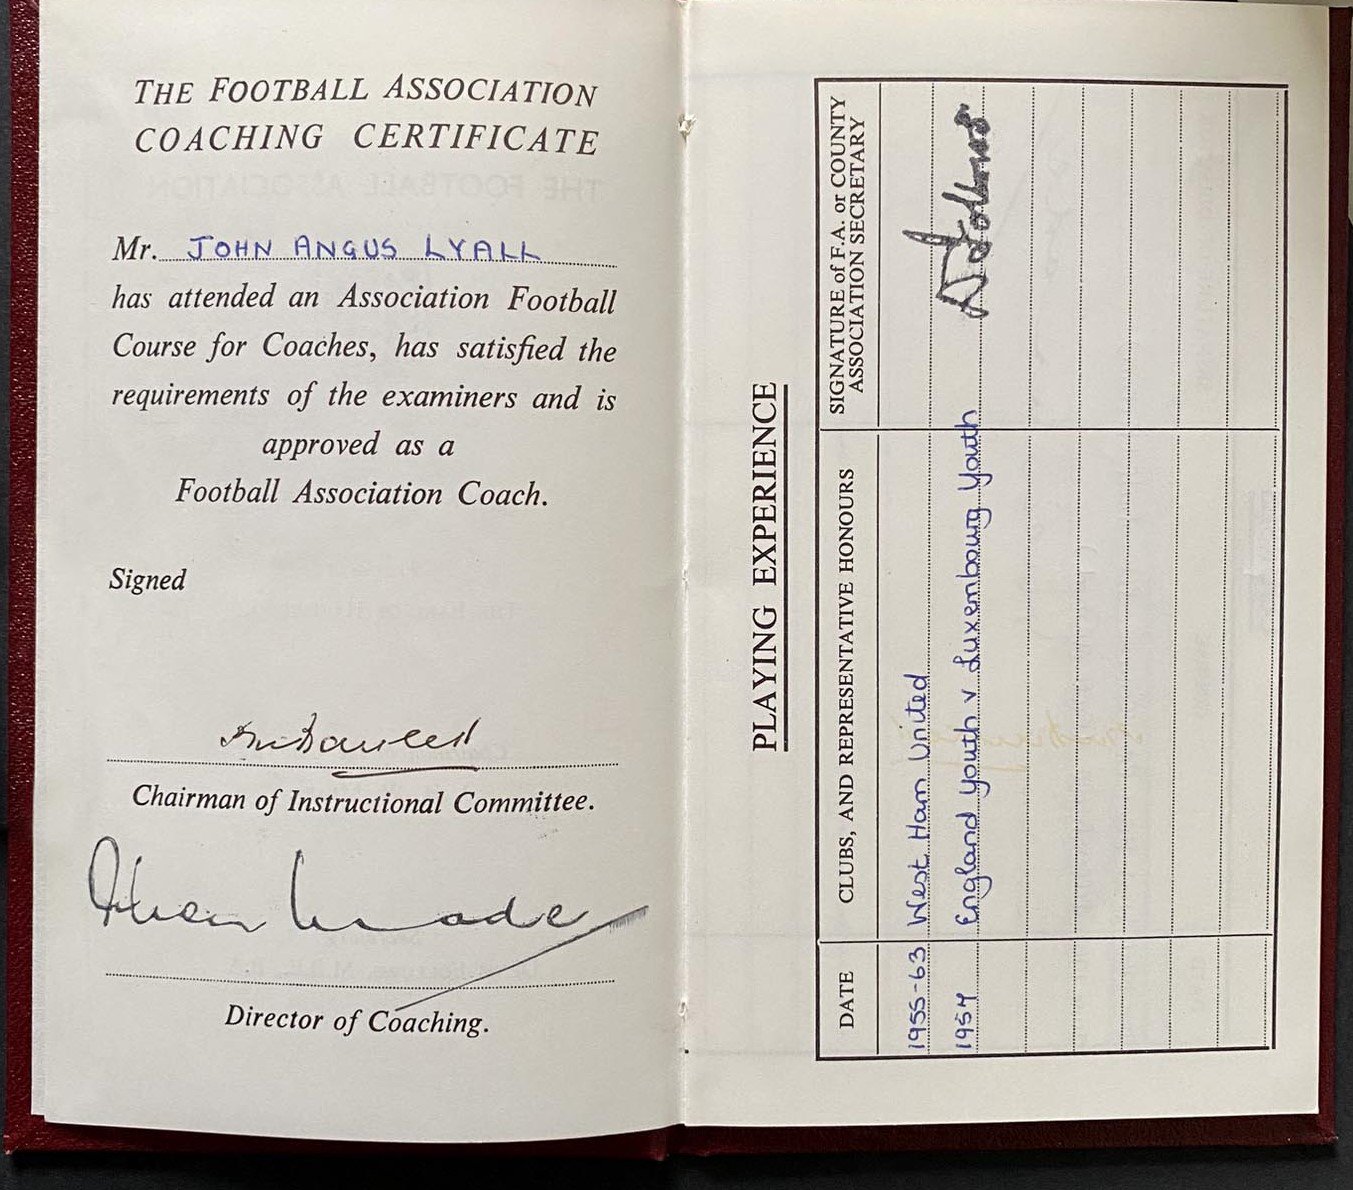 THE FOOTBALL ASSOCIATION
COACHING CERTIFICATE
Mr. JOHN ANGUS LYALL
has attended an Association Football
Course for Coaches, has satisfied the
requirements of the examiners and is
approved as a
Football Association Coach.
Signed
Chairman of Instructional Committee.
Allen Wade
Director of Coaching.
PLAYING EXPERIENCE
DATE CLUBS, AND REPRESENTATIVE HONOURS SIGNATURE of F.A. or COUNTY ASSOCIATION SECRETARY
1955-63 West Ham United
1957 England Youth v Luxembourg Youth